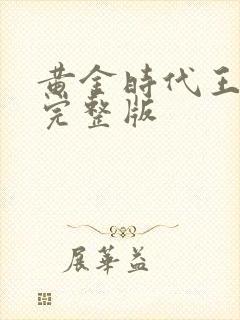 黄金時代王
完整版
展華益